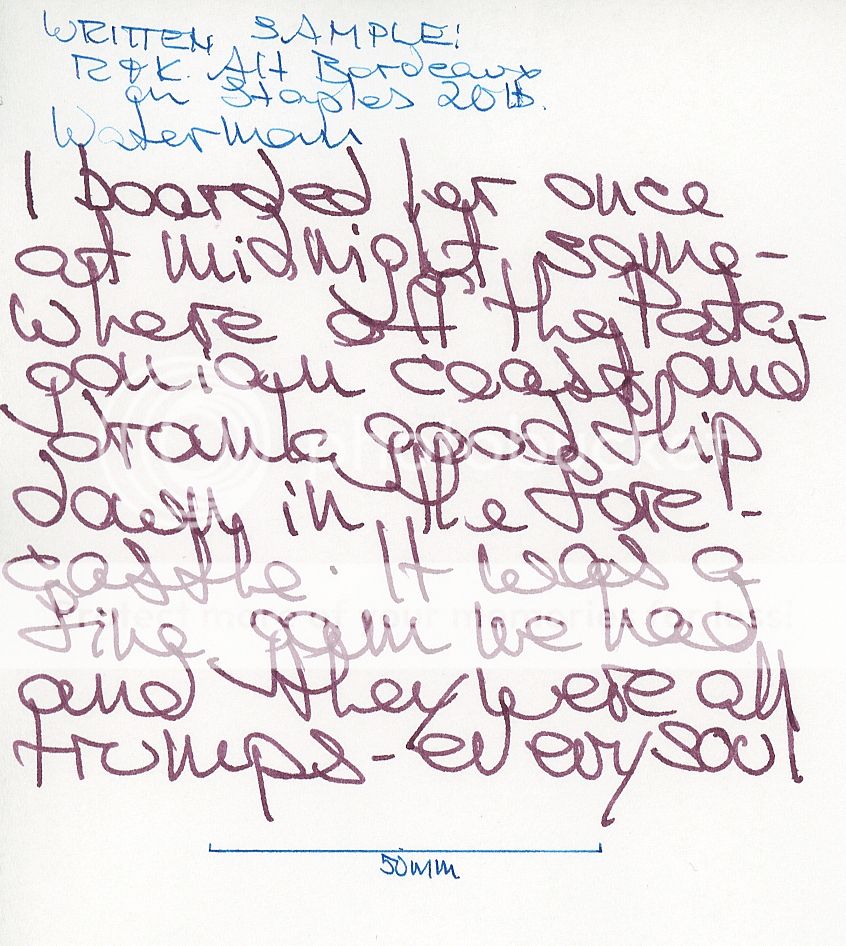 WRITTEN SAMPLE:
R&K Alt Bordeaux
on Staples 20lb.
Waterman
I boarded her once
at midnight some-
where off the Pata-
gonian coast, and
drank good flip
photobucket
down in the fore-
castle. It was a
Protect more of your memories for less!
fine gam we had
and they were all
trumps - every soul
50mm